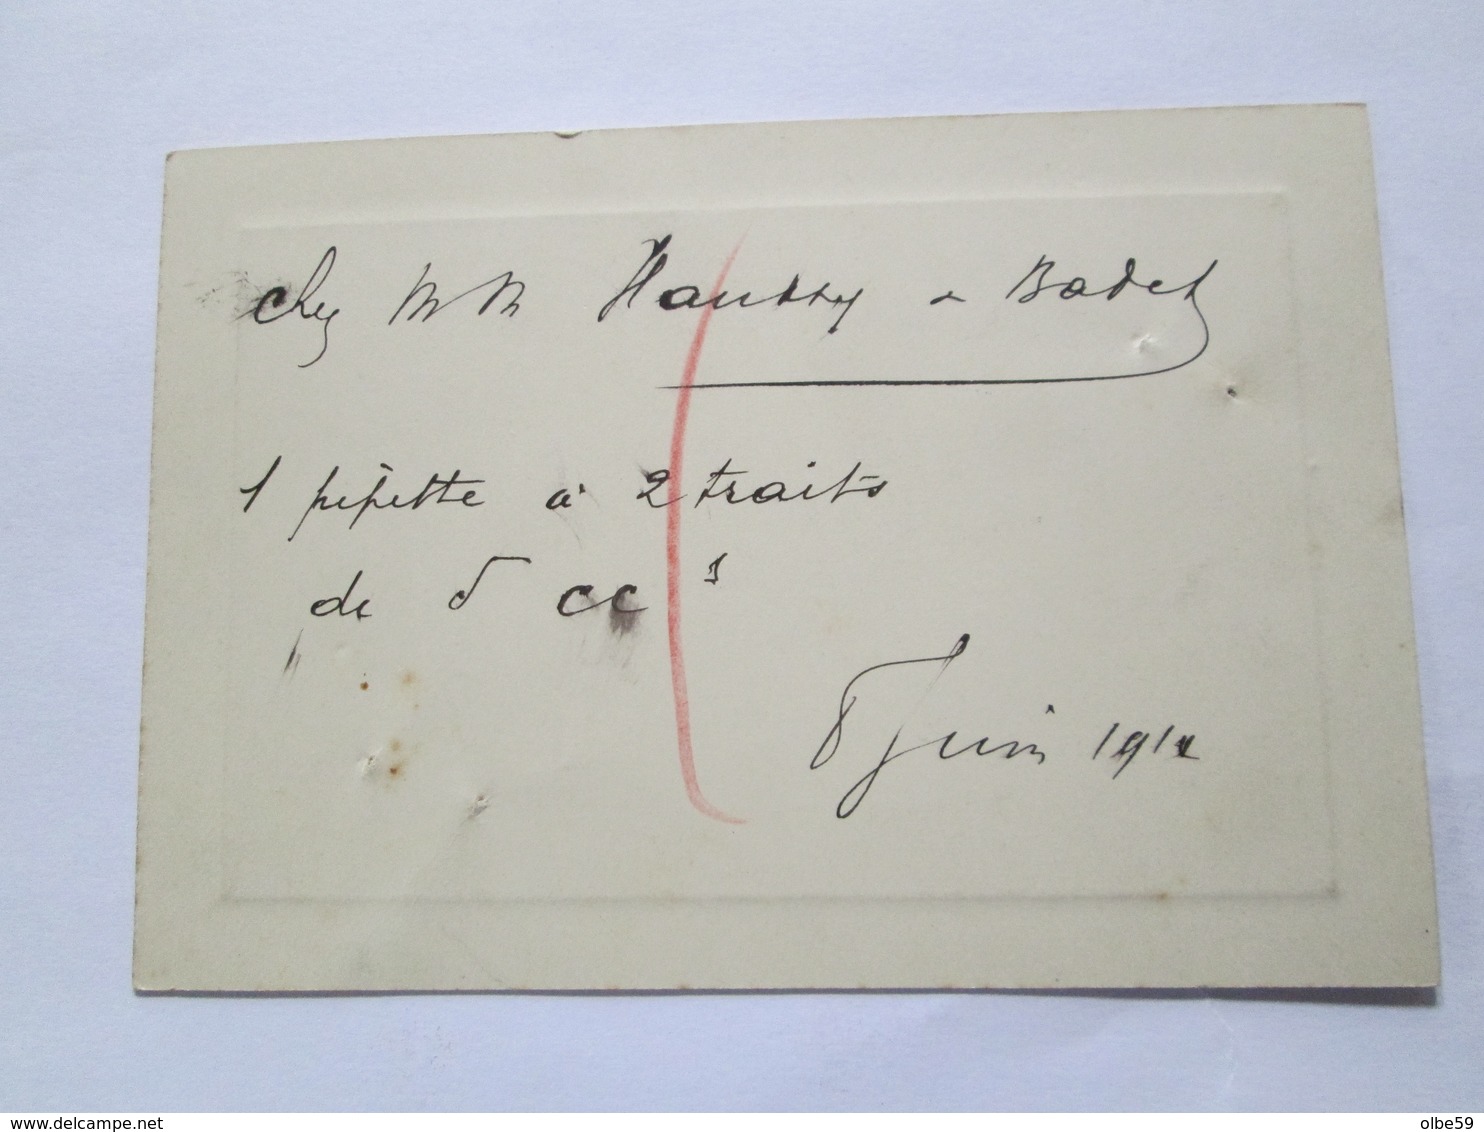 Chez MM Haussy & Badet
1 pipette à 2 traits
de 5 cc³
8 Juin 1912
delcampe.net
olbe59